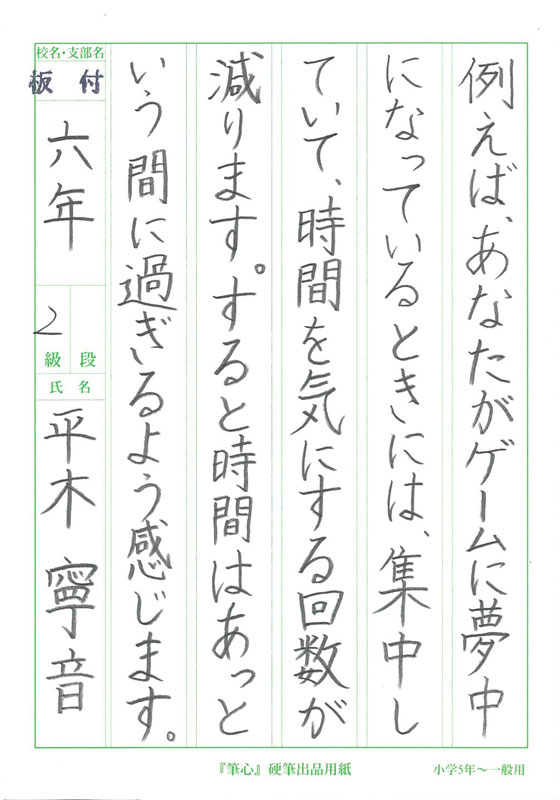 例えば、あなたがゲームに夢中
になっているときには、集中し
ていて、時間を気にする回数が
減ります。すると時間はあっと
いう間に過ぎるよう感じます。
校名・支部名
板付
六年
2
級 段
氏名
平木 寧音
『筆心』硬筆出品用紙
小学5年〜一般用